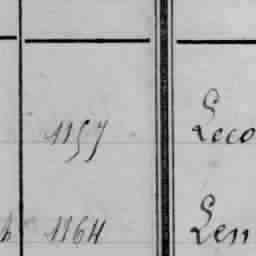 1157 Leco
h 1164 Len